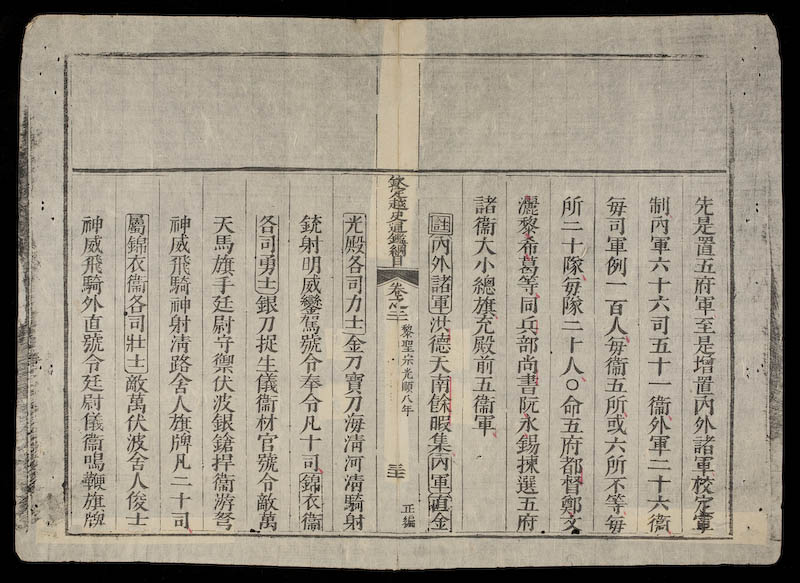 先是置五府軍至是增置内外諸軍校定軍
制内軍六十六司五十一衞外軍二十六衞
每司軍例一百人每衞五所或六所不等每
所二十隊每隊二十人〇命五府都督鄭文
灑黎希葛等同兵部尚書阮永錫揀選五府
諸衞大小總旗充殿前五衞軍
註内外諸軍洪德天南餘暇集内軍直金
欽定越史通鑑綱目
黎聖宗光順八年
正編
光殿各司力士金刀寶刀海清河清騎射
銃射明威鑾駕號令奉令凡十司錦衣衞
各司勇士銀刀捉生儀衞材官號令敵萬
天馬旗手廷尉守禦伏波銀鎗捍衞游弩
神威飛騎神射清路舍人旗牌凡二十司
屬錦衣衞各司壯士敵萬伏波舍人俊士
神威飛騎外直號令廷尉儀衞鳴鞭旗牌